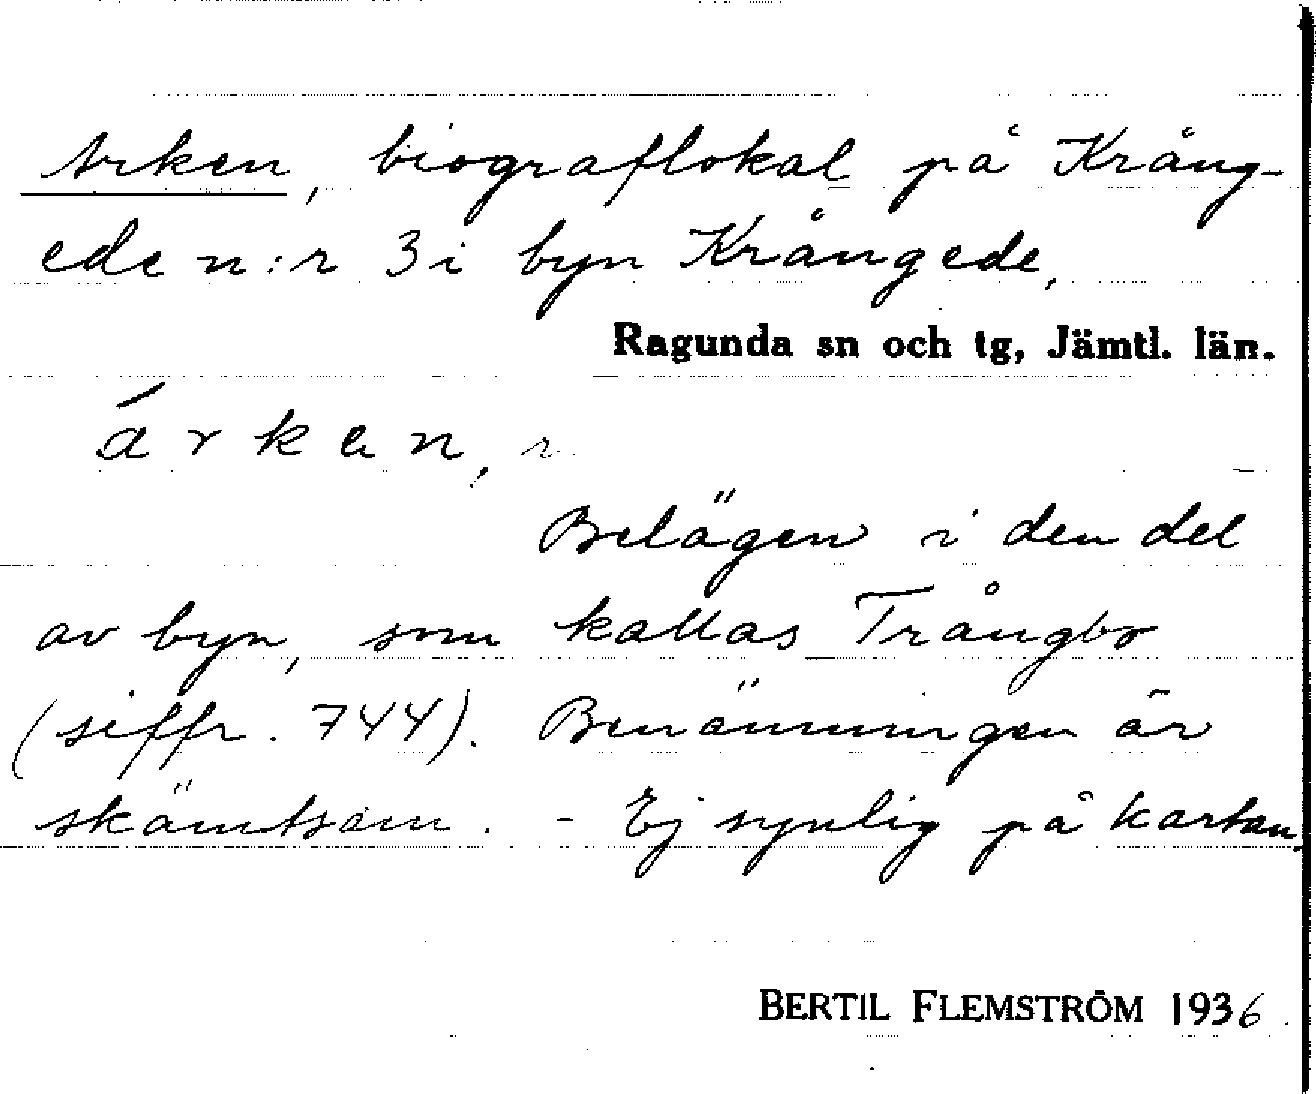 Arken, biograflokal på Krång-
ede n:r 3 i byn Krångede,
Ragunda sn och tg, Jämtl. län.
árkɐn, r
Belägen i den del
av byn, som kallas Trångbo
(siffr. 744). Benämningen är
skämtsam. - Ej synlig på kartan.
BERTIL FLEMSTRÖM 1936.